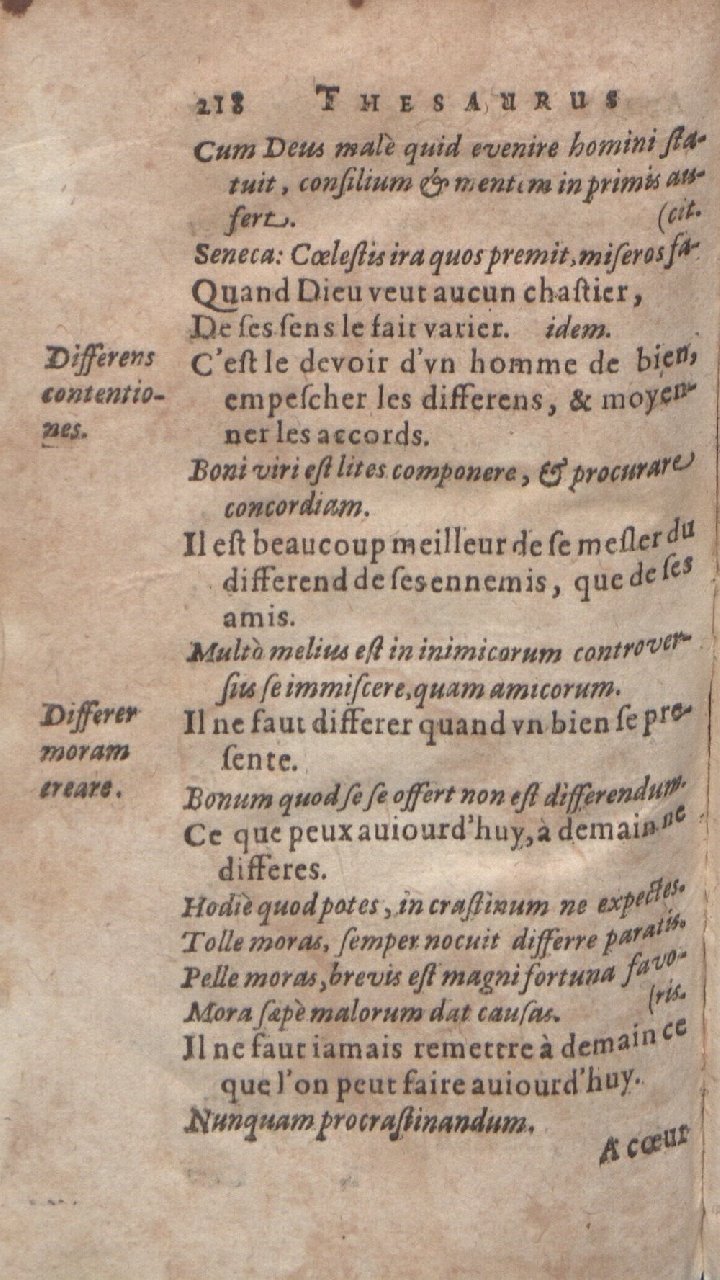 218 THESAURUS
Cum Deus malè quid evenire homini ſta-
tuit, conſilium & mentem in primis au-
fert.
(cit.
Seneca: Cœleſtis ira quos premit, miſeros fa-
Quand Dieu veut aucun chaſtier,
De ſes ſens le fait varier. idem.
Differens
contentio-
nes.
C'eſt le devoir d'vn homme de bien,
empeſcher les differens, & moyen-
ner les accords.
Boni viri eſt lites componere, & procurare
concordiam.
Il eſt beaucoup meilleur de ſe meſler du
differend de ſes ennemis, que de ſes
amis.
Multò melius eſt in inimicorum controver-
ſius ſe immiſcere, quam amicorum.
Differer
moram
creare.
Il ne faut differer quand vn bien ſe pre-
ſente.
Bonum quod ſe ſe offert non eſt differendum.
Ce que peux auiourd'huy, à demain ne
differes.
Hodiè quod potes, in craſtinum ne expectes.
Tolle moras, ſemper nocuit differre paratis.
Pelle moras, brevis eſt magni fortuna favo-
(ris.
Mora ſæpè malorum dat cauſas.
Il ne faut iamais remettre à demain ce
que l'on peut faire auiourd'huy.
Nunquam procraſtinandum.
A cœur